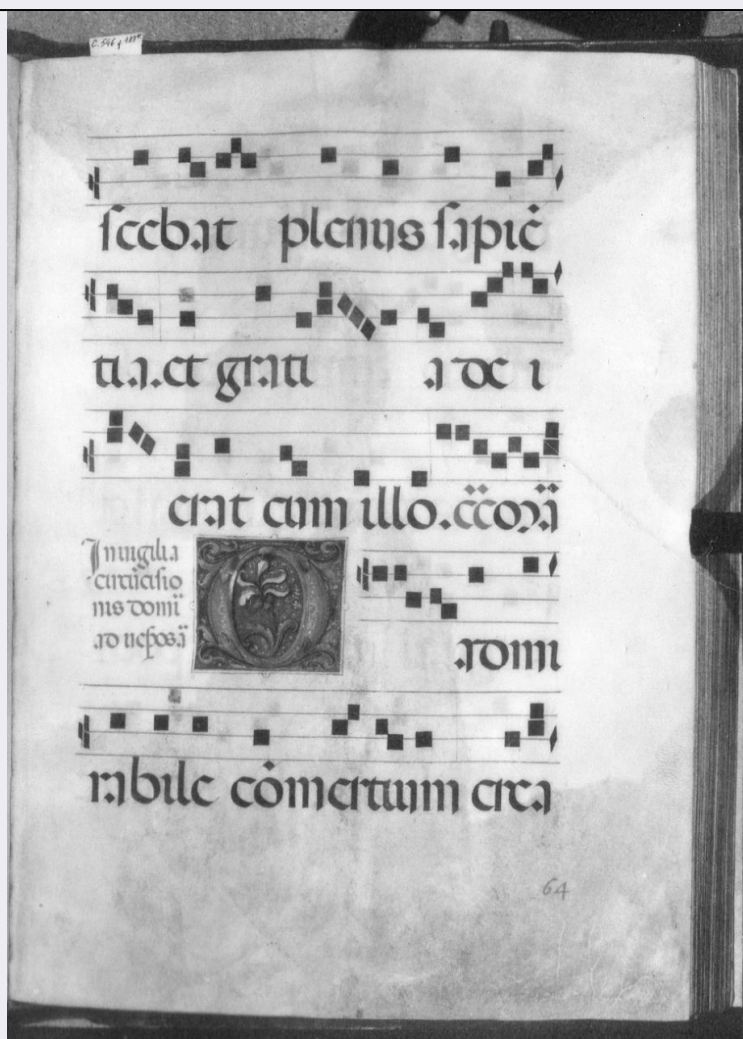 C. 546 f
scebat plenus sapiē
tia. et grati a dei
erat cum illo. ēcorā
In vigilia
circūcisio
nis domī
ad vesposā
O admi
rabile cōmertium crea
64